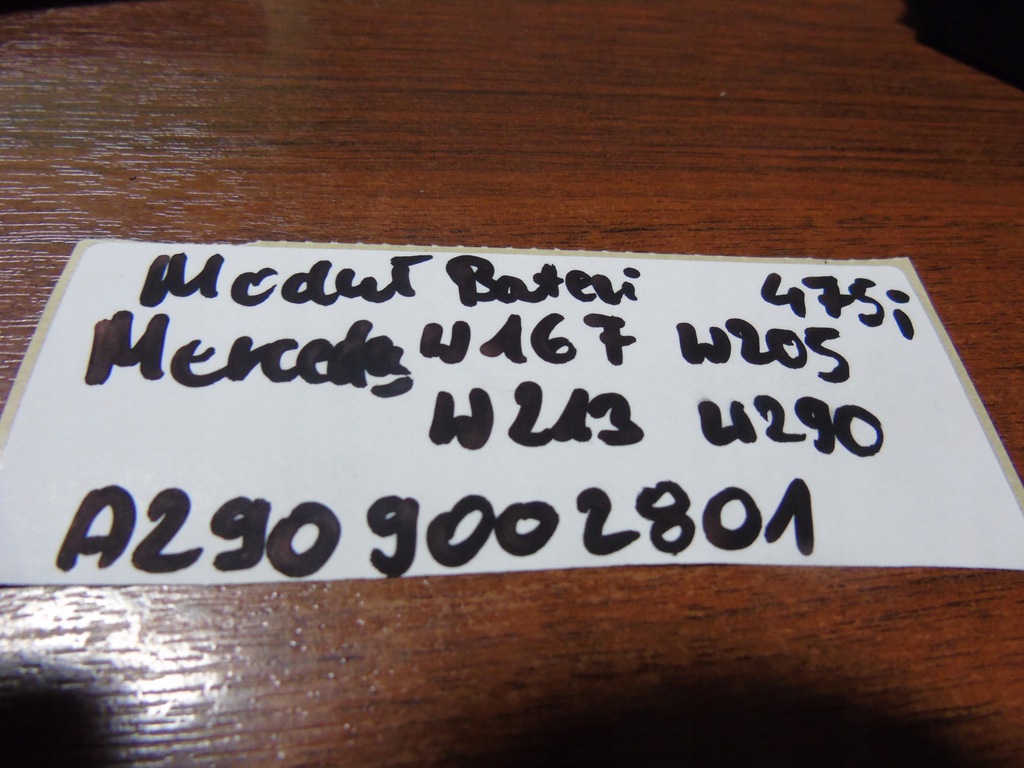 Moduł Bateri 475j
Mercedes W167 W205
W213 W290
A290 9002801